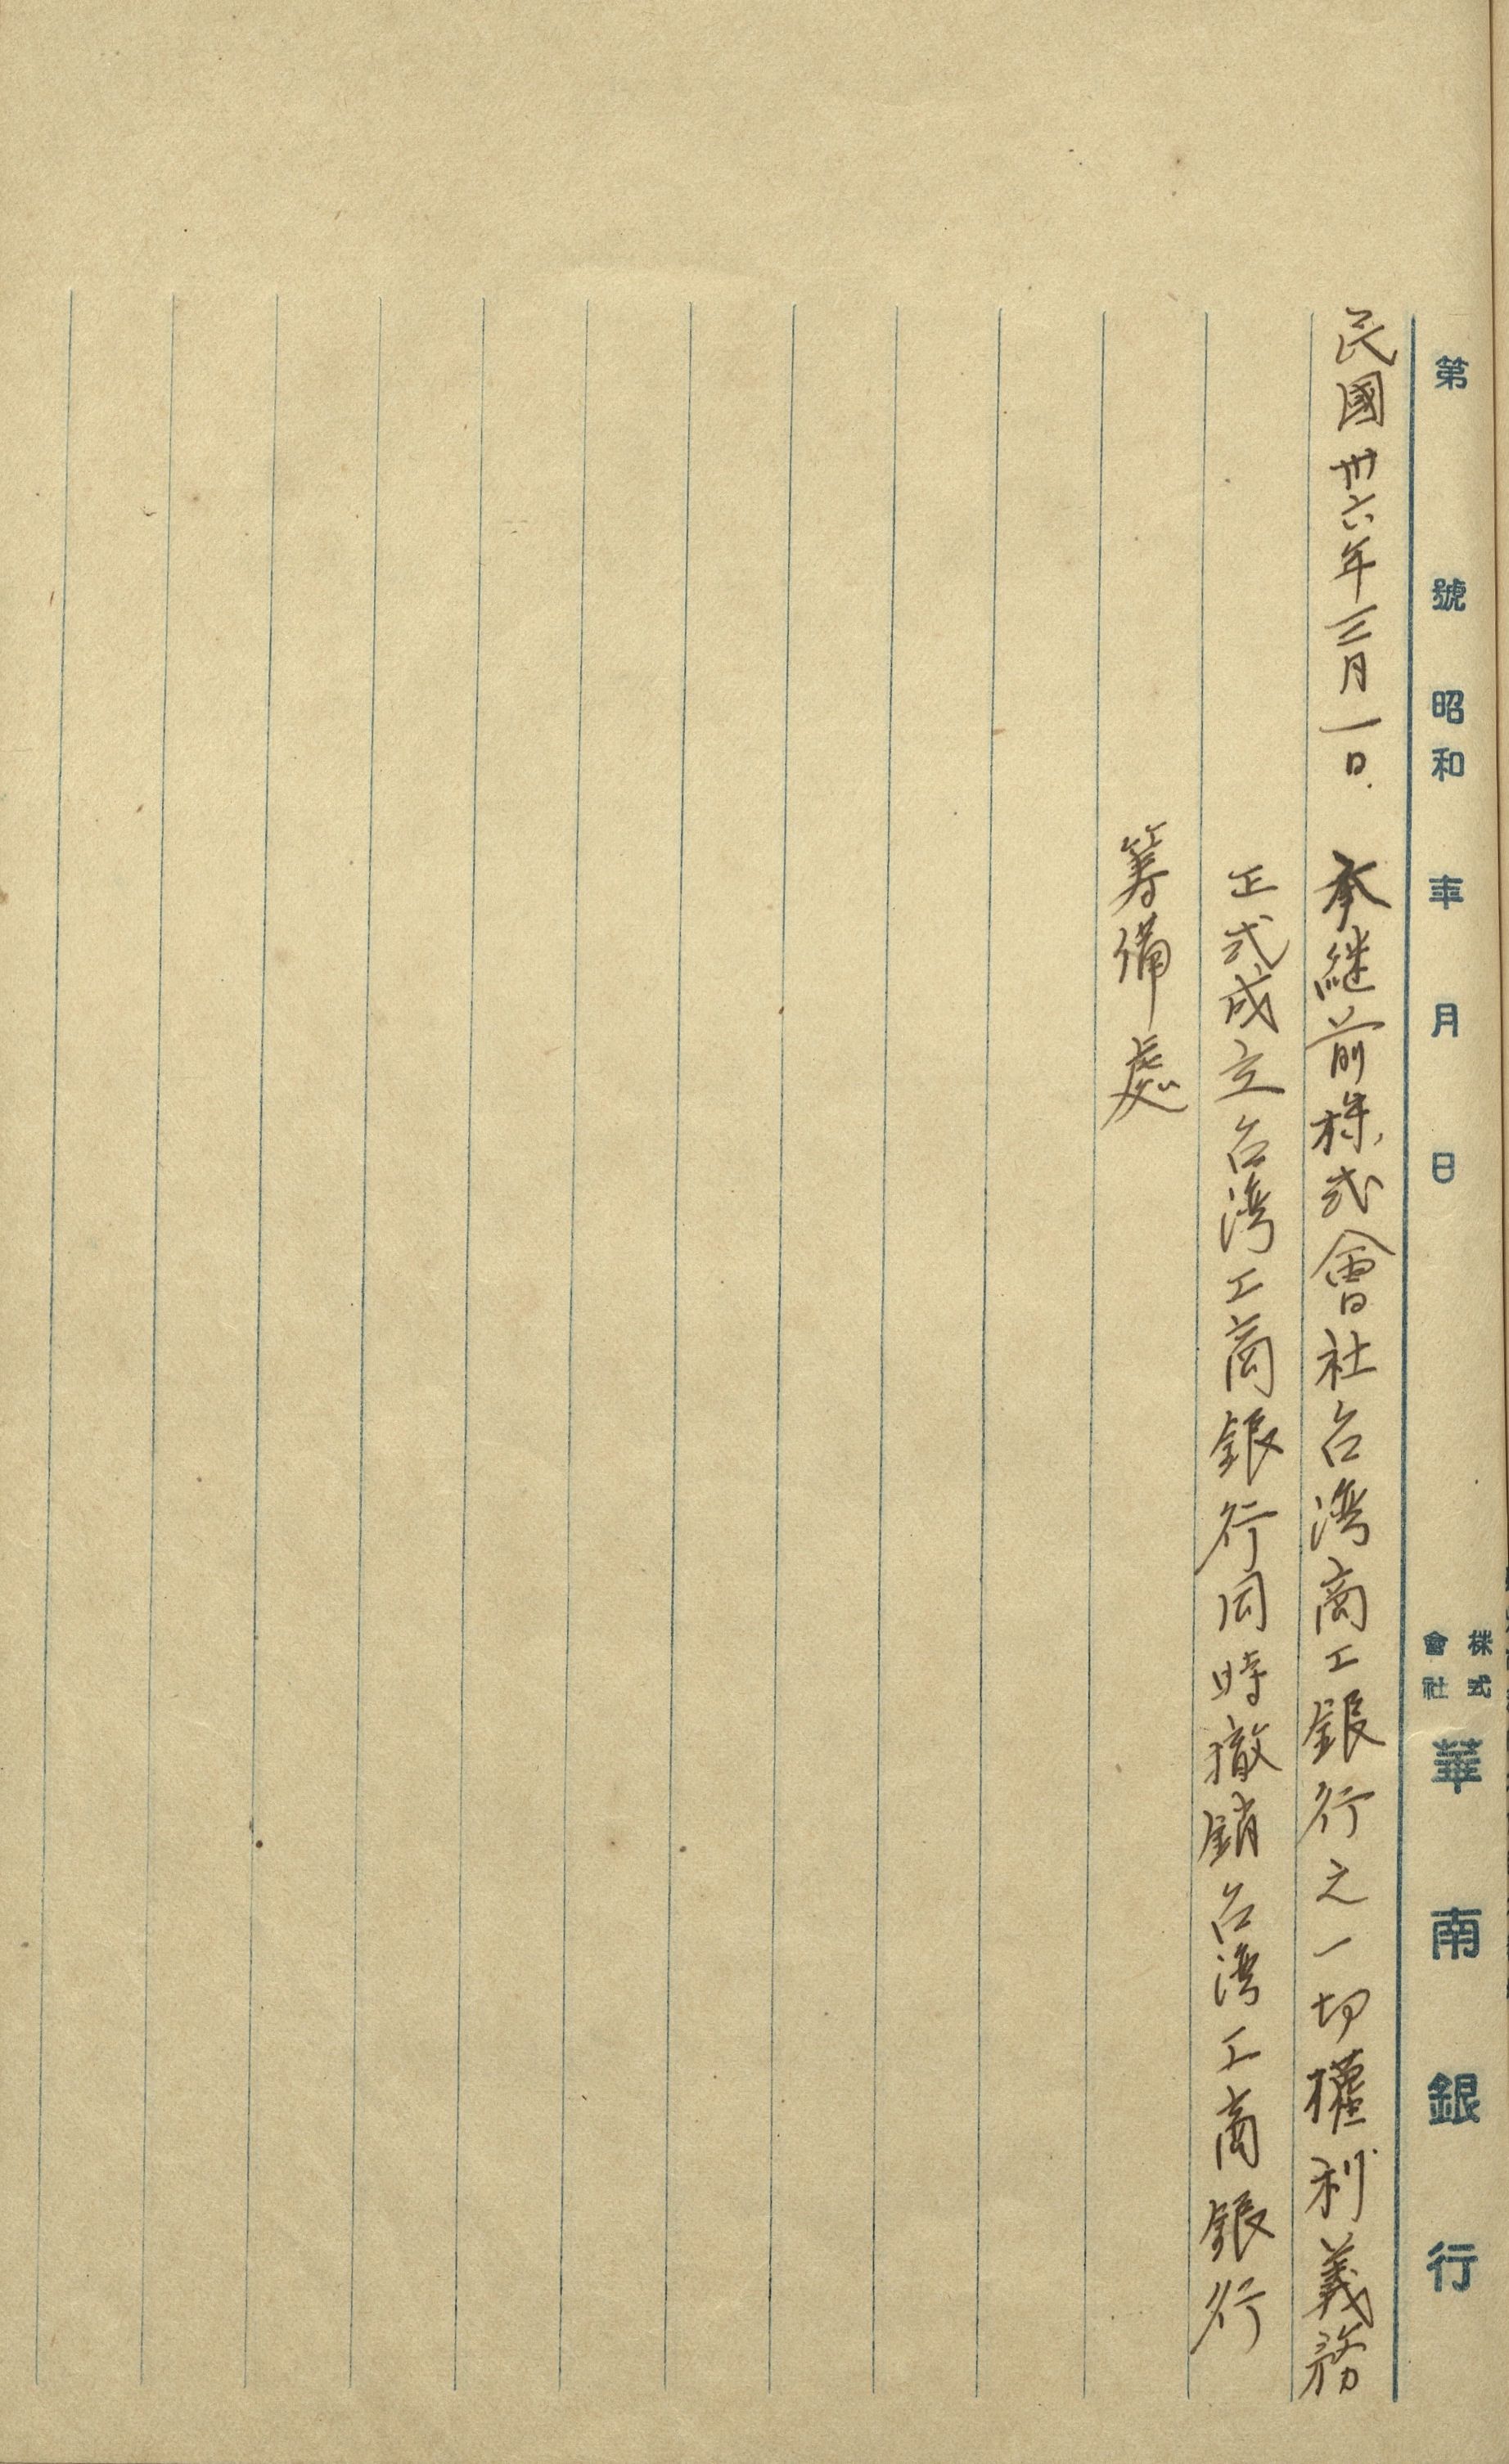 第 號 昭和 年 月 日 株式會社 華南銀行
民國卅六年三月一日. 承継前株式會社台湾商工銀行之一切權利義務
正式成立台湾工商銀行同時撤銷台湾工商銀行
籌備處